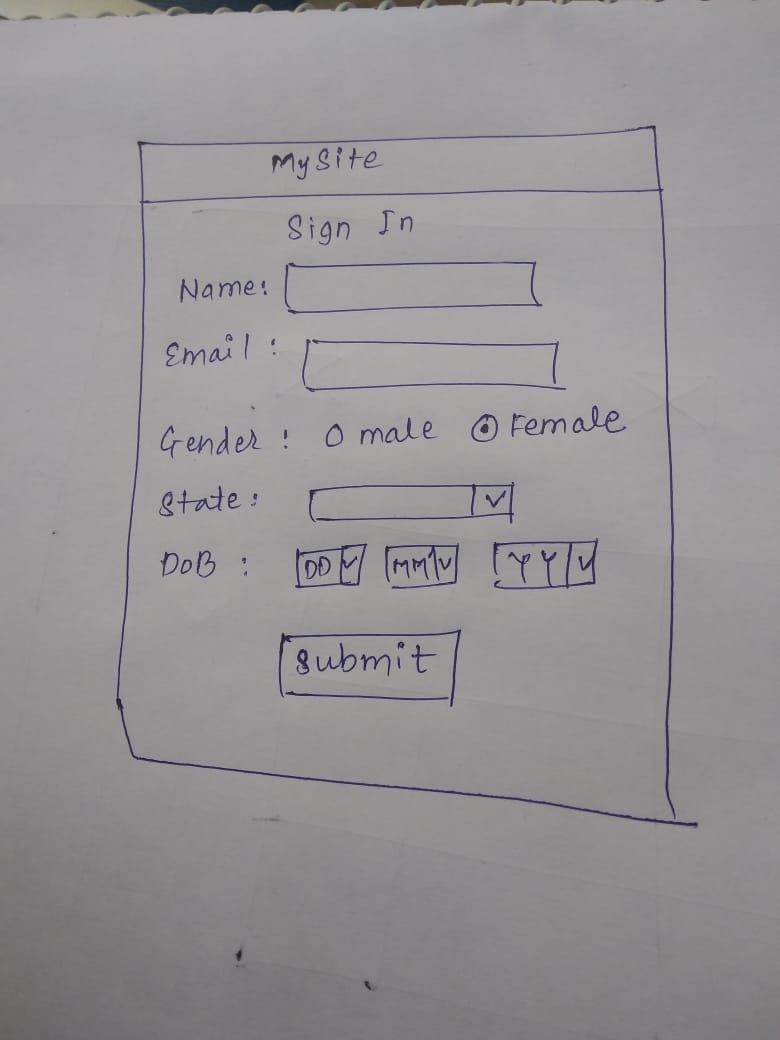 My Site
Sign In
Name:
Email :
Gender : male Female
State :
DoB : DD MM YY
Submit